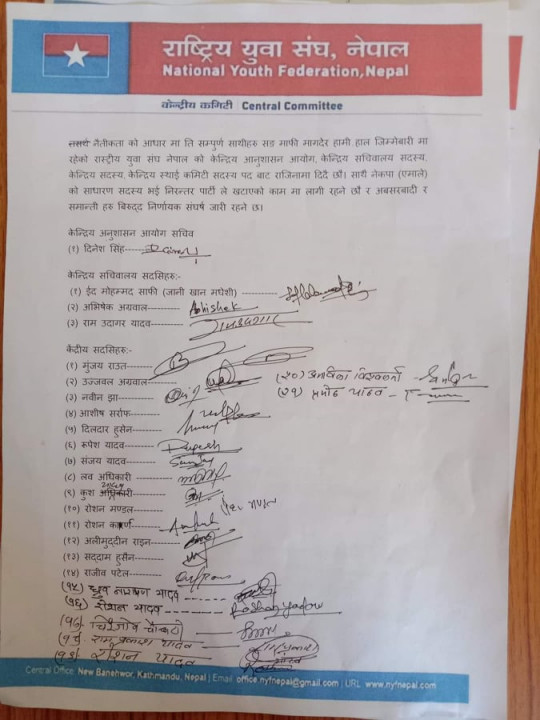 राष्ट्रिय युवा संघ, नेपाल
National Youth Federation,Nepal
केन्द्रीय कमिटी | Central Committee
नैतीकता को आधार मा ति सम्पुर्ण साथीहरु सङ माफी मागदैर हामी हाल जिम्मेबारी मा
रहेको रास्ट्रीय युवा संघ नेपाल को केन्द्रिय आनुशासन आयोग, केन्द्रिय सचिवालय सदस्य,
केन्द्रिय सदस्य, केन्द्रिय स्थाई कमिटी सदस्य पद बाट राजिनामा दिदै छौं। साथै नेकपा (एमाले)
को साधारण सदस्य भई निरन्तर पार्टी ले खटाएको काम मा लागी रहने छौ र अबसरबादी र
समान्ती हरु बिरुद्द निर्णायक संघर्ष जारी रहने छ।
केन्द्रिय अनुशासन आयोग सचिव
(१) दिनेश सिंह-----
केन्द्रिय सचिवालय सदसिहरु:-
(१) ईद मोहम्मद साफी (जानी खान मधेशी) ----------
(२) अभिषेक अग्रवाल ---------- Abhishek
(३) राम उदागर यादव----------
केंद्रीय सदसिहरु:-
(१) मुंजय राउत----------
(२) उज्जवल अग्रवाल----------
(३) नवीन झा----------
(४) आशीष सर्राफ----------
(५) दिलदार हुसेन----------
(६) रूपेश यादव---------- Rupesh
(७) संजय यादव---------- Sanjay
(८) लव अधिकारी ----------
(९) कुश यादव
(१०) रोशन मण्डल----------
(११) रोशन कर्ण----------
(१२) अलीमुद्दीन राइन----------
(१३) सद्दाम हुसैन----------
(१४) राजीव पटेल----------
(१५) ध्रुव नारायण यादव ----
(१६) रोशन यादव ---- Roshan yadav
(१७)
(१८) रामप्रकाश यादव
(१९) रोशन यादव
(२०)
(२१) प्रमोद यादव -
Central Office: New Baneshwor, Kathmandu, Nepal | Email: office.nyfnepal@gmail.com | URL: www.nyfnepal.com